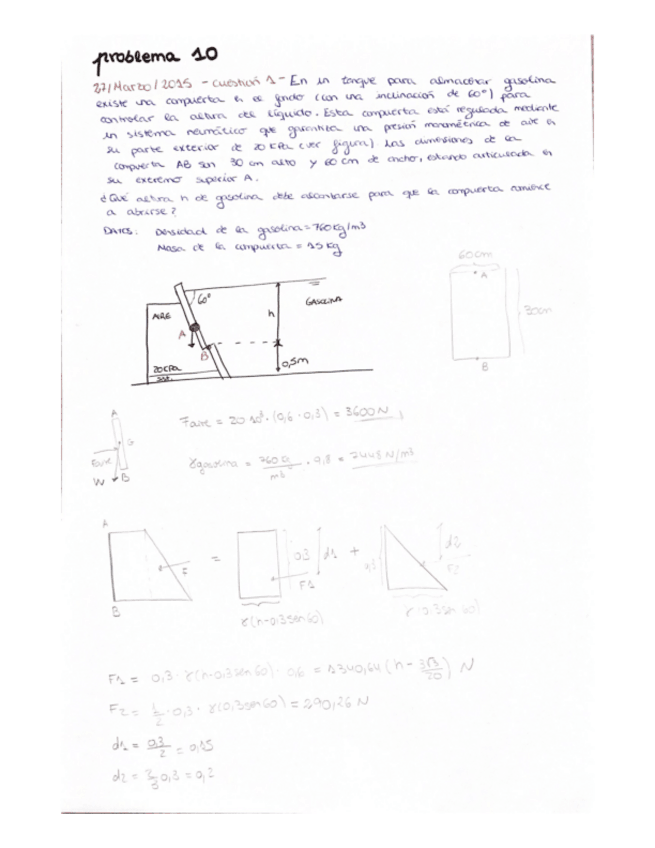 problema 10
27/Marzo/2015 - cuestión 1 - En un tanque para almacenar gasolina
existe una compuerta en el fondo (con una inclinación de 60°) para
controlar la altura del líquido. Esta compuerta está regulada mediante
un sistema neumático que garantiza una presión manométrica de aire en
su parte exterior de 20 kPa (ver figura) Las dimensiones de la
compuerta AB son 30 cm alto y 60 cm de ancho, estando articulada en
su extremo superior A.
¿Qué altura h de gasolina debe alcanzarse para que la compuerta comience
a abrirse?
DATOS: Densidad de la gasolina = 760 kg/m3
Masa de la compuerta = 15 kg
60cm
A
30cm
B
60°
AIRE
GASOLINA
h
A
B
20 kPa
0,5m
A
G
Faire
W
B
Faire = 20·10³·(0,6·0,3) = 3600 N
γgasolina = 760 / m³ · 9,8 = 7448 N/m³
A
F
B
=
0,3
d1
F1
γ(h-0,3sen60)
+
0,3
d2
F2
γ(0,3sen60)
F1 = 0,3·γ(h-0,3sen60)·0,6 = 1340,64 (h - 3√3/20) N
F2 = 1/2·0,3·γ(0,3sen60) = 290,26 N
d1 = 0,3/2 = 0,15
d2 = 2/3 0,3 = 0,2